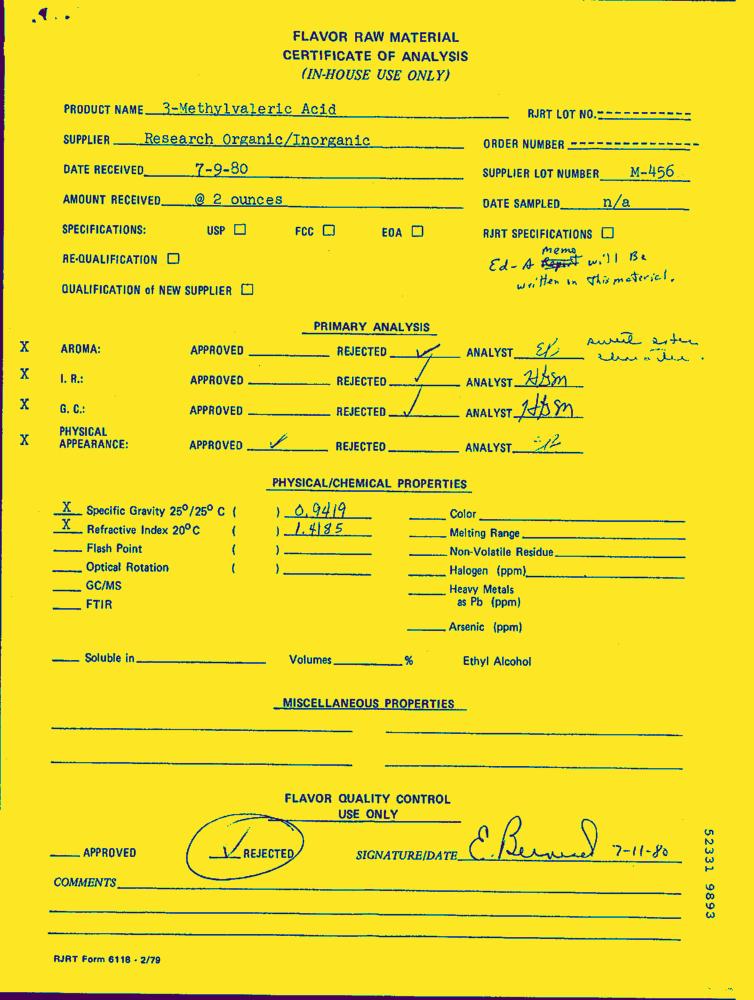 FLAVOR RAW MATERIAL
CERTIFICATE OF ANALYSIS
(IN-HOUSE USE ONLY)
PRODUCT NAME 3-Methylvaleric Acid RJRT LOT NO.
SUPPLIER Research Organic/Inorganic ORDER NUMBER
DATE RECEIVED 7-9-80 SUPPLIER LOT NUMBER M-456
AMOUNT RECEIVED @ 2 ounces DATE SAMPLED n/a
SPECIFICATIONS: USP ☐ FCC ☐ EOA ☐ RJRT SPECIFICATIONS ☐
RE-QUALIFICATION ☐ Ed-A memo will Be
QUALIFICATION of NEW SUPPLIER ☐ written on this material.
PRIMARY ANALYSIS
X AROMA: APPROVED REJECTED ✓ ANALYST sweet ester
X I. R.: APPROVED REJECTED ✓ ANALYST
X G. C.: APPROVED REJECTED ✓ ANALYST
X PHYSICAL
APPEARANCE: APPROVED ✓ REJECTED ANALYST
PHYSICAL/CHEMICAL PROPERTIES
X Specific Gravity 25º/25º C ( ) 0.9419 Color
X Refractive Index 20ºC ( ) 1.4185 Melting Range
Flash Point ( ) Non-Volatile Residue
Optical Rotation ( ) Halogen (ppm)
GC/MS Heavy Metals
FTIR as Pb (ppm)
Arsenic (ppm)
Soluble in Volumes % Ethyl Alcohol
MISCELLANEOUS PROPERTIES
FLAVOR QUALITY CONTROL
USE ONLY
APPROVED ✓ REJECTED SIGNATURE/DATE E. 7-11-80
COMMENTS
52331 9893
RJRT Form 6118 - 2/79